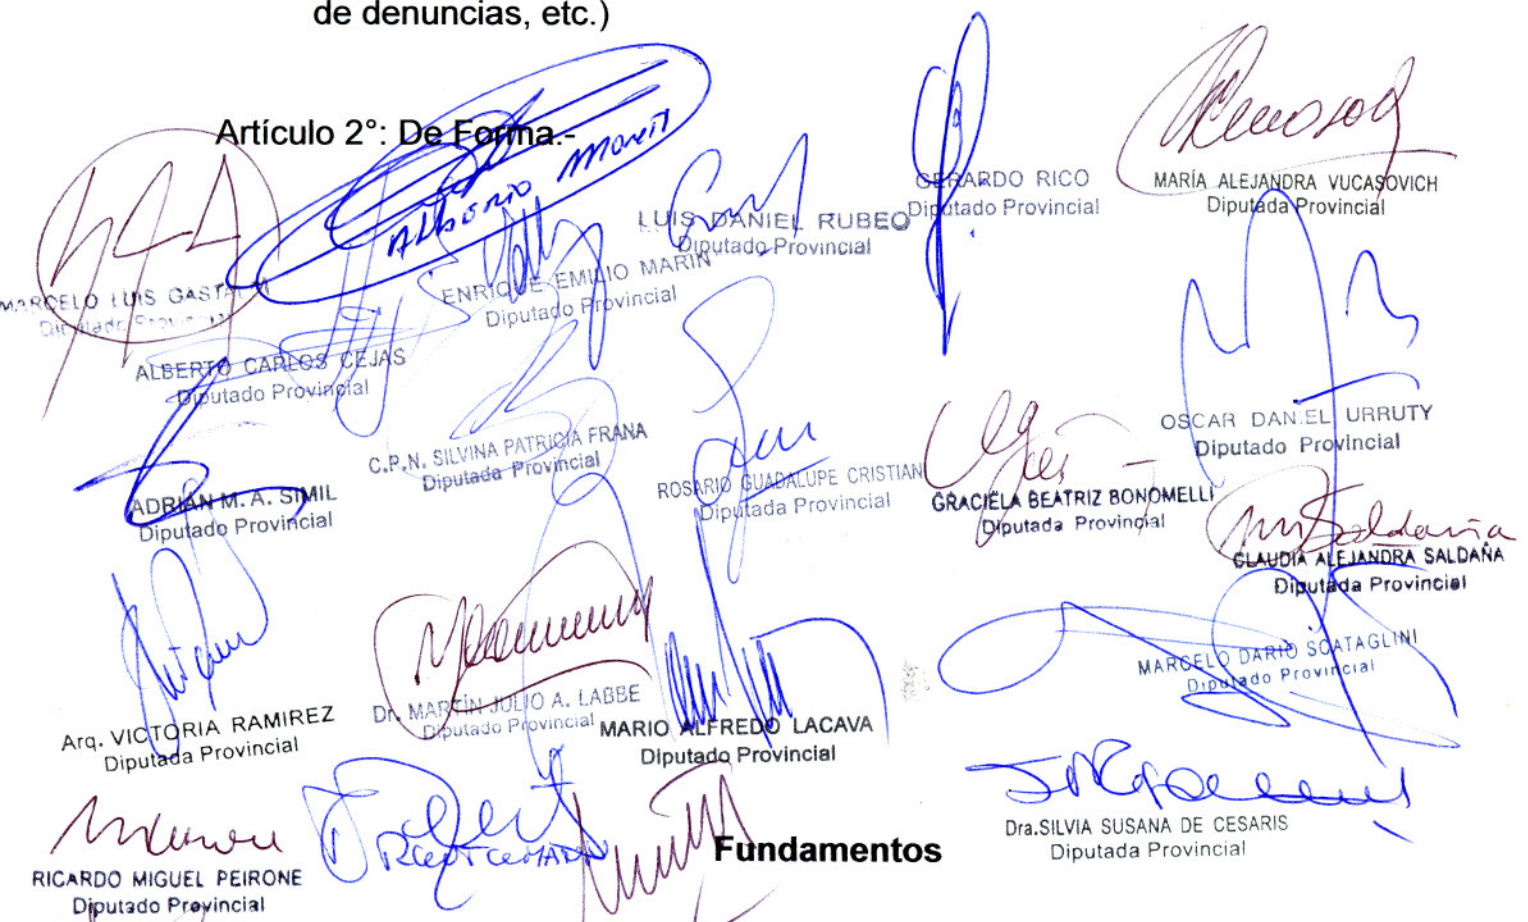 de denuncias, etc.)
Artículo 2°: De Forma.-
Alberto Monti
GERARDO RICO
Diputado Provincial
MARÍA ALEJANDRA VUCASOVICH
Diputada Provincial
LUIS DANIEL RUBEO
Diputado Provincial
ENRIQUE EMILIO MARIN
Diputado Provincial
MARCELO LUIS
Diputado Provincial
ALBERTO CARLOS CEJAS
Diputado Provincial
OSCAR DANIEL URRUTY
Diputado Provincial
C.P.N. SILVINA PATRICIA FRANA
Diputada Provincial
ROSARIO GUADALUPE CRISTIAN
Diputada Provincial
GRACIELA BEATRIZ BONOMELLI
Diputada Provincial
ADRIÁN M. A. SIMIL
Diputado Provincial
Saldaña
CLAUDIA ALEJANDRA SALDAÑA
Diputada Provincial
MARCELO DARIO SCATAGLINI
Diputado Provincial
Arq. VICTORIA RAMIREZ
Diputada Provincial
Dr. MARTÍN JULIO A. LABBE
Diputado Provincial
MARIO ALFREDO LACAVA
Diputado Provincial
Dra.SILVIA SUSANA DE CESARIS
Diputada Provincial
Fundamentos
RICARDO MIGUEL PEIRONE
Diputado Provincial